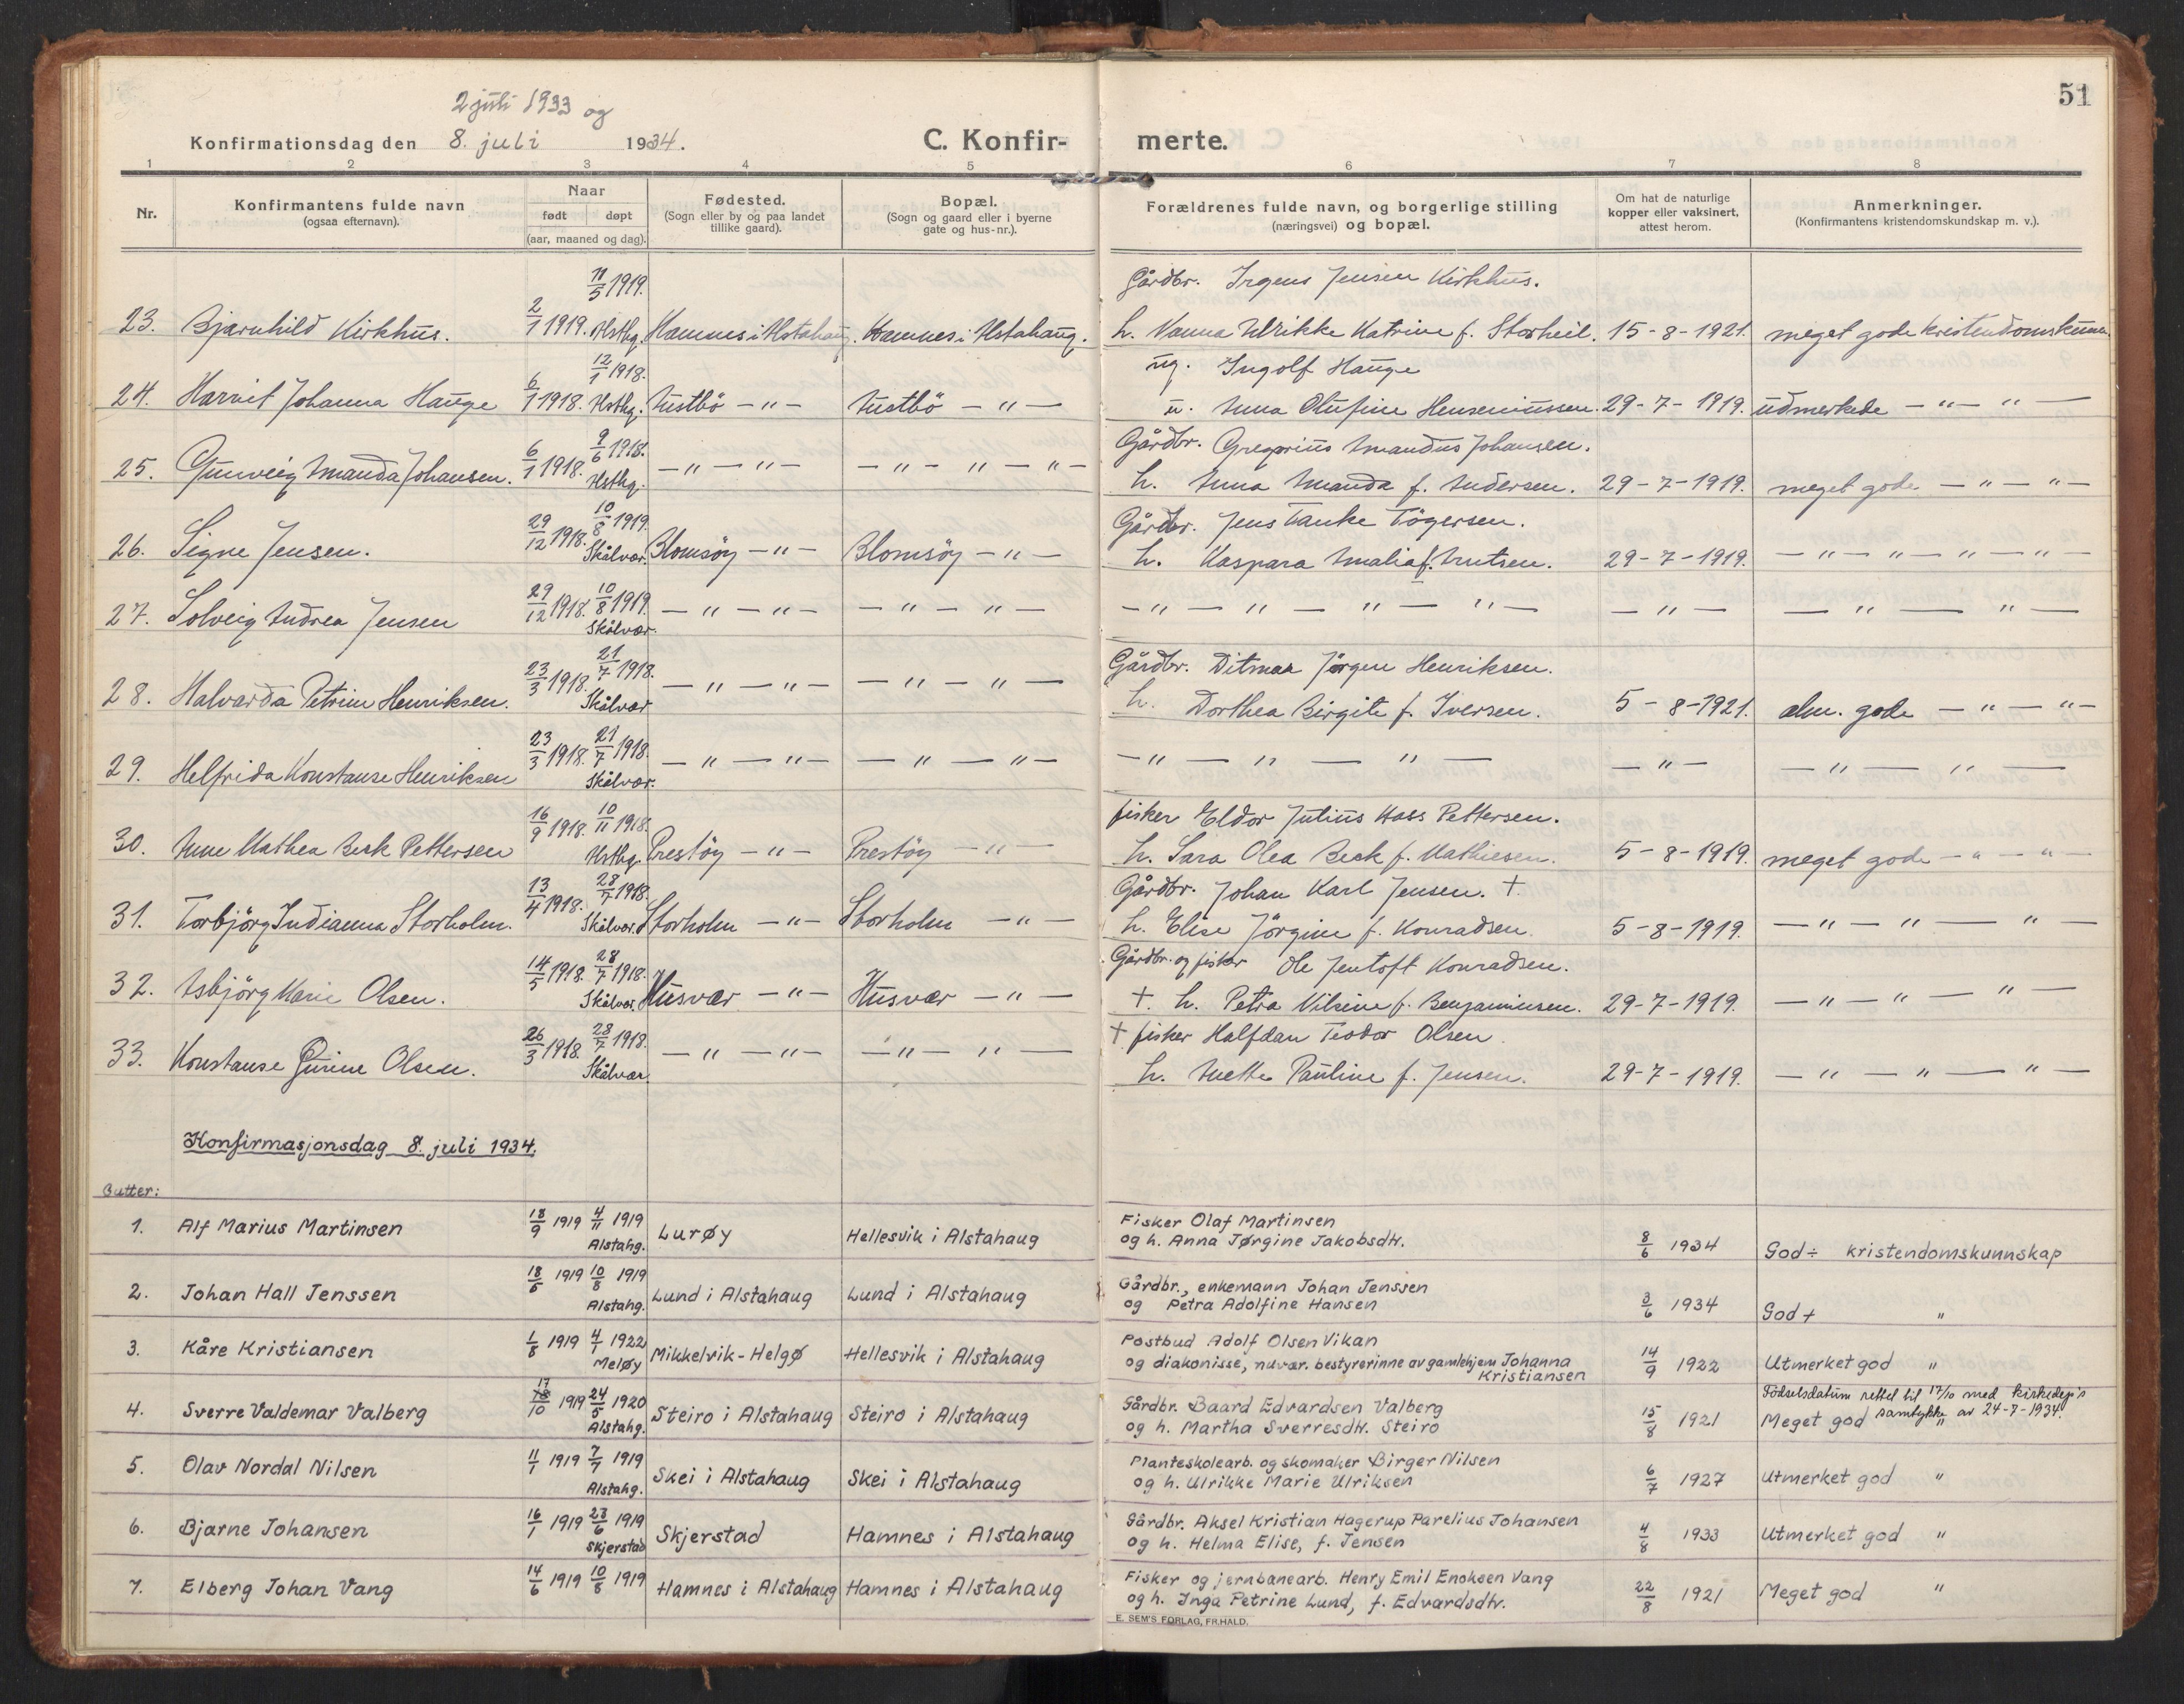 51
2 juli 1933 og
Konfirmationsdag den 8. juli 1934.
C. Konfirmerte.
1 2 3 4 5 6 7 8
Nr.
Konfirmantens fulde navn
(ogsaa efternavn).
Naar
født døpt
(aar, maaned og dag).
Fødested.
(Sogn eller by og paa landet
tillike gaard).
Bopæl.
(Sogn og gaard eller i byerne
gate og hus-nr.).
Forældrenes fulde navn, og borgerlige stilling
(næringsvei) og bopæl.
Om hat de naturlige
kopper eller vaksinert,
attest herom.
Anmerkninger.
(Konfirmantens kristendomskundskap m. v.).
11/5 1919. Gårdbr. Irgens Jensen Kirkhus.
23. Bjarnhild Kirkhus. 2/1 1919. Alsthg. Hamnes i Alstahaug. Hamnes i Alstahaug. h. Nanna Ulrikke Katrine f. Storheil. 15-8-1921. meget gode kristendomskunn.
12/1 1918. ug. Ingolf Hauge
24. Harriet Johanna Hauge 6/1 1918. Alsthg. Austbö -"- Austbö -"- u. Anna Olufine Henseniussen. 29-7-1919. udmerkede -"- "-
9/6 1918. Gårdbr. Gregorius Amandus Johansen.
25. Gunveig Amanda Johansen. 6/1 1918. Alsthg. -"-"- -"-"-"- h. Anna Amanda f. Andersen. 29-7-1919. meget gode -"-"-
10/8 1919. Gårdbr. Jens Tanke Tögersen.
26. Signe Jensen. 29/12 1918. Skålvær. Blomsöy -"- Blomsöy -"- h. Kaspara Amalia f. Arntsen. 29-7-1919. -"-"-"-"-"-
27. Solveig Andrea Jensen 29/12 1918. 10/8 1919. Skålvær. -"-"- -"-"- -"-"-"-"- -"- -"-"-
21/7 1918. Gårdbr. Ditmar Jörgen Henriksen.
28. Halvarda Petrine Henriksen. 23/3 1918. Skålvær -"-"- -"-"- h. Dorthea Birgite f. Iversen. 5-8-1921. alm. gode -"-"-
29. Helfrida Konstanse Henriksen 23/3 1918. 21/7 1918. Skålvær. -"-"- -"-"- -"-"-"- -"- -"-"-
10/11 1918. fisker Eldor Julius Hass Pettersen.
30. Anne Mathea Beck Pettersen 16/9 1918. Alsthg. Prestöy -"- Prestöy -"- h. Sara Olea Beck f. Mathiesen. 5-8-1919. meget gode -"-"-
28/7 1918. Gårdbr. Johan Karl Jensen. †
31. Torbjörg Indianna Storholm. 13/4 1918. Skålvær. Storholm -"- Storholm -"- h. Elise Jörgine f. Konradsen. 5-8-1919. -"-"-"-
28/7 1918. Gårdbr. og fisker Ole Jentoft Konradsen.
32. Asbjörg Marie Olsen. 14/5 1918. Skålvær. Husvær -"- Husvær -"- †. h. Petra Nilsine f. Benjaminsen. 29-7-1919. -"-"-"-
28/7 1918. † fisker Halfdan Teodor Olsen.
33. Konstanse Gurine Olsen. 26/3 1918. Skålvær. -"-"- -"-"- h. Anette Pauline f. Jensen. 29-7-1919. -"-"-"-
Konfirmasjonsdag 8. juli 1934.
Gutter:
1. Alf Marius Martinsen 18/9 1919 4/11 1919 Alstahg. Lurøy Hellesvik i Alstahaug Fisker Olaf Martinsen
og h. Anna Jørgine Jakobsdtr. 8/6 1934 God ÷ kristendomskunnskap
2. Johan Hall Jenssen 18/5 1919 10/8 1919 Alstahg. Lund i Alstahaug Lund i Alstahaug Gårdbr., enkemann Johan Jenssen
og Petra Adolfine Hansen 3/6 1934 God + "
3. Kåre Kristiansen 1/8 1919 4/1 1922 Meløy Mikkelvik-Helgø Hellesvik i Alstahaug Postbud Adolf Olsen Vikan
og diakonisse, nuvær. bestyrerinne av gamlehjem Johanna
Kristiansen 14/9 1922 Utmerket god "
4. Sverre Valdemar Valberg 17 18/10 1919 24/5 1920 Alstahg. Steiro i Alstahaug Steiro i Alstahaug Gårdbr. Baard Edvardsen Valberg
og h. Martha Sverresdtr. Steiro 15/8 1921 Födselsdatum rettet til 17/10 med kirkedep's
Meget god samtykke av 24-7-1934. "
5. Olav Nordal Nilsen 11/1 1919 7/7 1919 Alstahg. Skei i Alstahaug Skei i Alstahaug Planteskolearb. og skomaker Birger Nilsen
og h. Ulrikke Marie Ulriksen 6/7 1927 Utmerket god "
6. Bjarne Johansen 16/1 1919 23/6 1919 Skjerstad Skjerstad Hamnes i Alstahaug Gårdbr. Aksel Kristian Hagerup Parelius Johansen
og h. Helma Elise, f. Jensen 4/8 1933 Utmerket god "
7. Elberg Johan Vang 14/6 1919 10/8 1919 Hamnes i Alstahaug Hamnes i Alstahaug Fisker og jernbanearb. Henry Emil Enoksen Vang
og h. Inga Petrine Lund, f. Edvardsdtr. 22/8 1921 Meget god "
E. SEM'S FORLAG, FR.HALD.